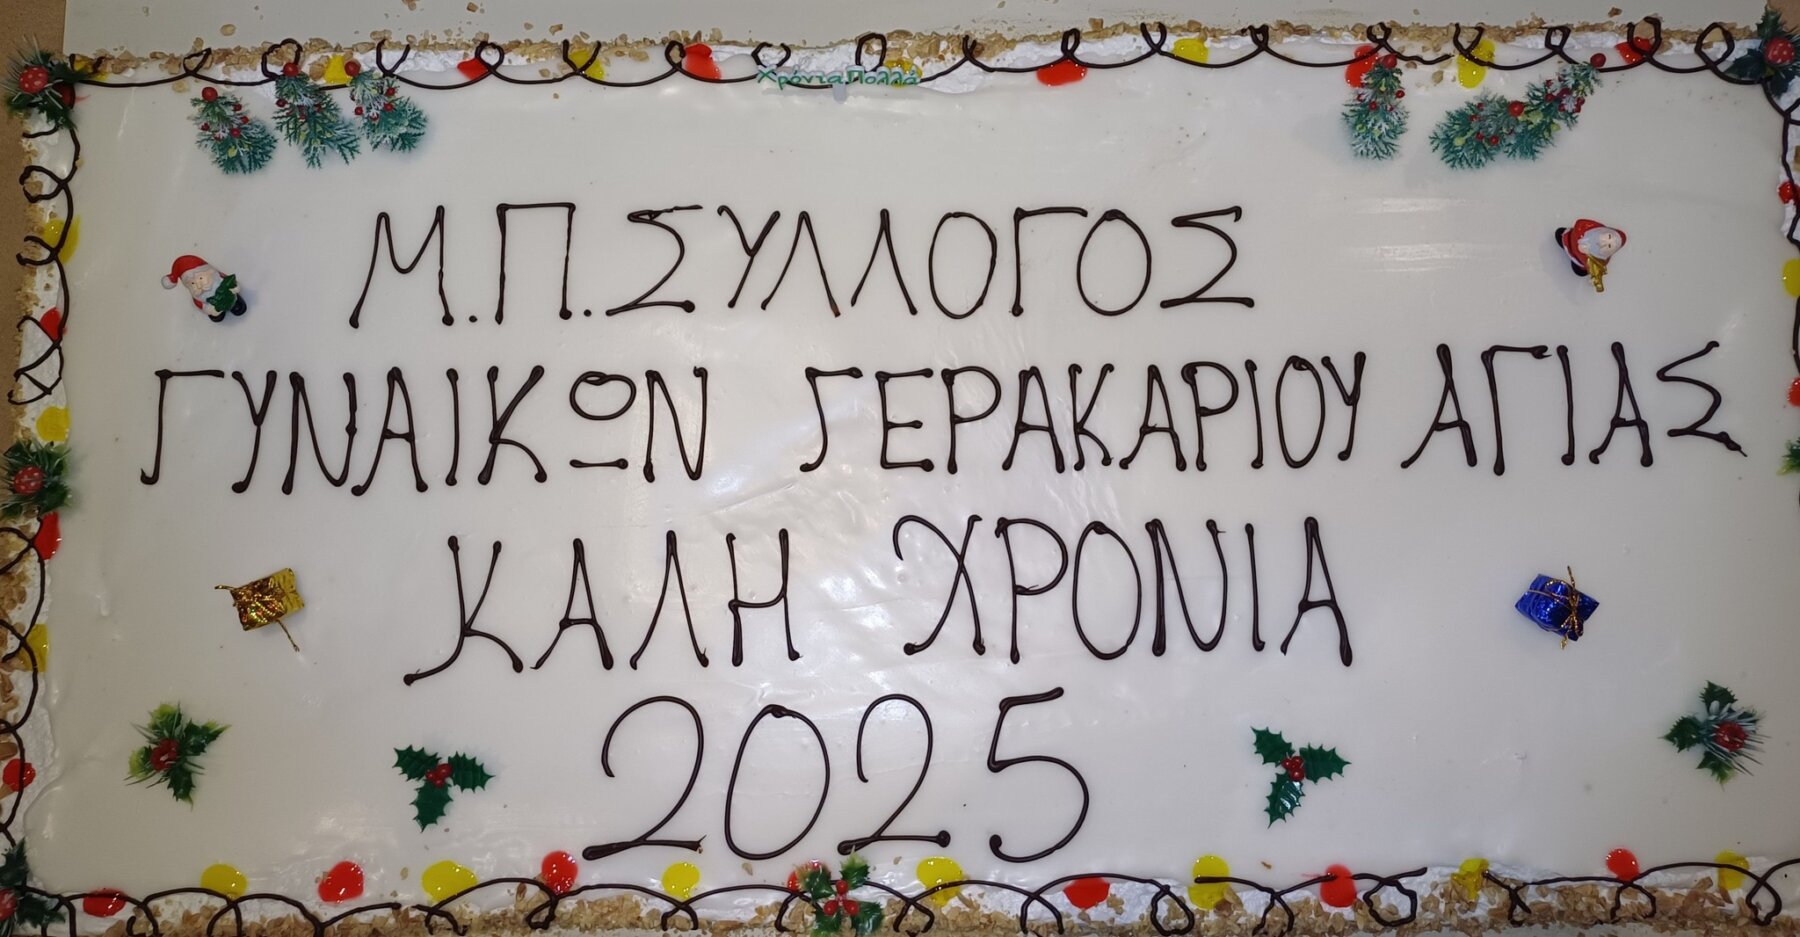 Χρόνια Πολλά
Μ.Π.ΣΥΛΛΟΓΟΣ
ΓΥΝΑΙΚΩΝ ΓΕΡΑΚΑΡΙΟΥ ΑΓΙΑΣ
ΚΑΛΗ ΧΡΟΝΙΑ
2025